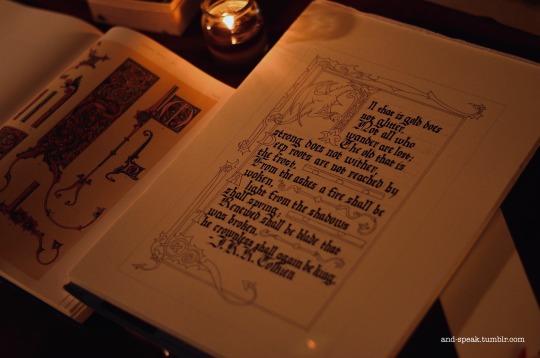 ll that is gold does
not glitter,
Not all who
wander are lost;
The old that is
strong does not wither,
eep roots are not reached by
the frost.
From the ashes a fire shall be
woken,
light from the shadows
shall spring;
Renewed shall be blade that
was broken,
he crownless shall again be king.
-J.R.R. Tolkien
and-speak.tumblr.com